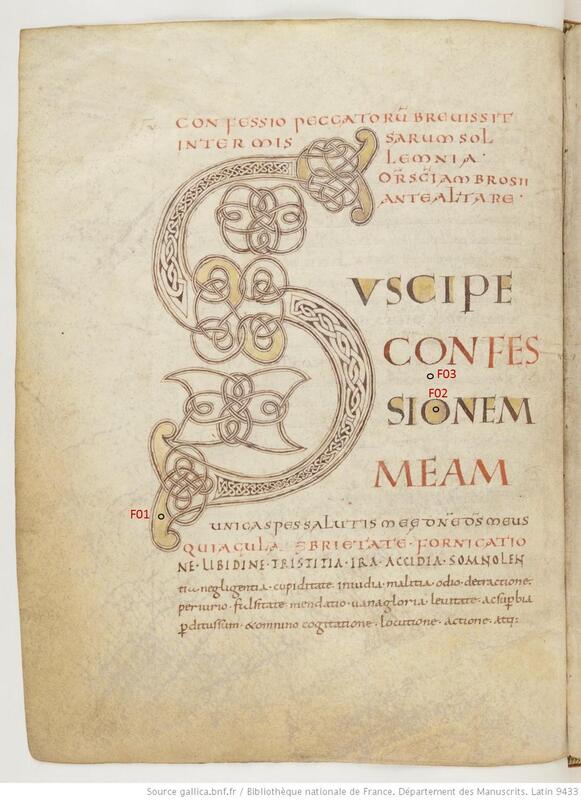 CONFESSIO PECCATORŪ BREUISSIT
INTER MIS SARUM SOL
LEMNIA·
OR̄ SC̄I AMBROSII
ANTE ALTARE·
S
VSCIPE
CONFES
F03
F02
SIONEM
MEAM
F01
UNICA SPES SALUTIS MEE DN̄E DS̄ MEUS
QUIA GULA. EBRIETATE· FORNICATIO
NE· LIBIDINE· TRISTITIA· IRA· ACCIDIA· SOMNOLEN
tia· neglegentia· cupiditate· inuidia· malitia· odio· detractione·
periurio· falsitate· mendatio· uana gloria· leuitate· ac sup̄bia
p̄ditus sum· & omnino cogitatione· locutione· actione· atq:
Source gallica.bnf.fr / Bibliothèque nationale de France. Département des Manuscrits. Latin 9433